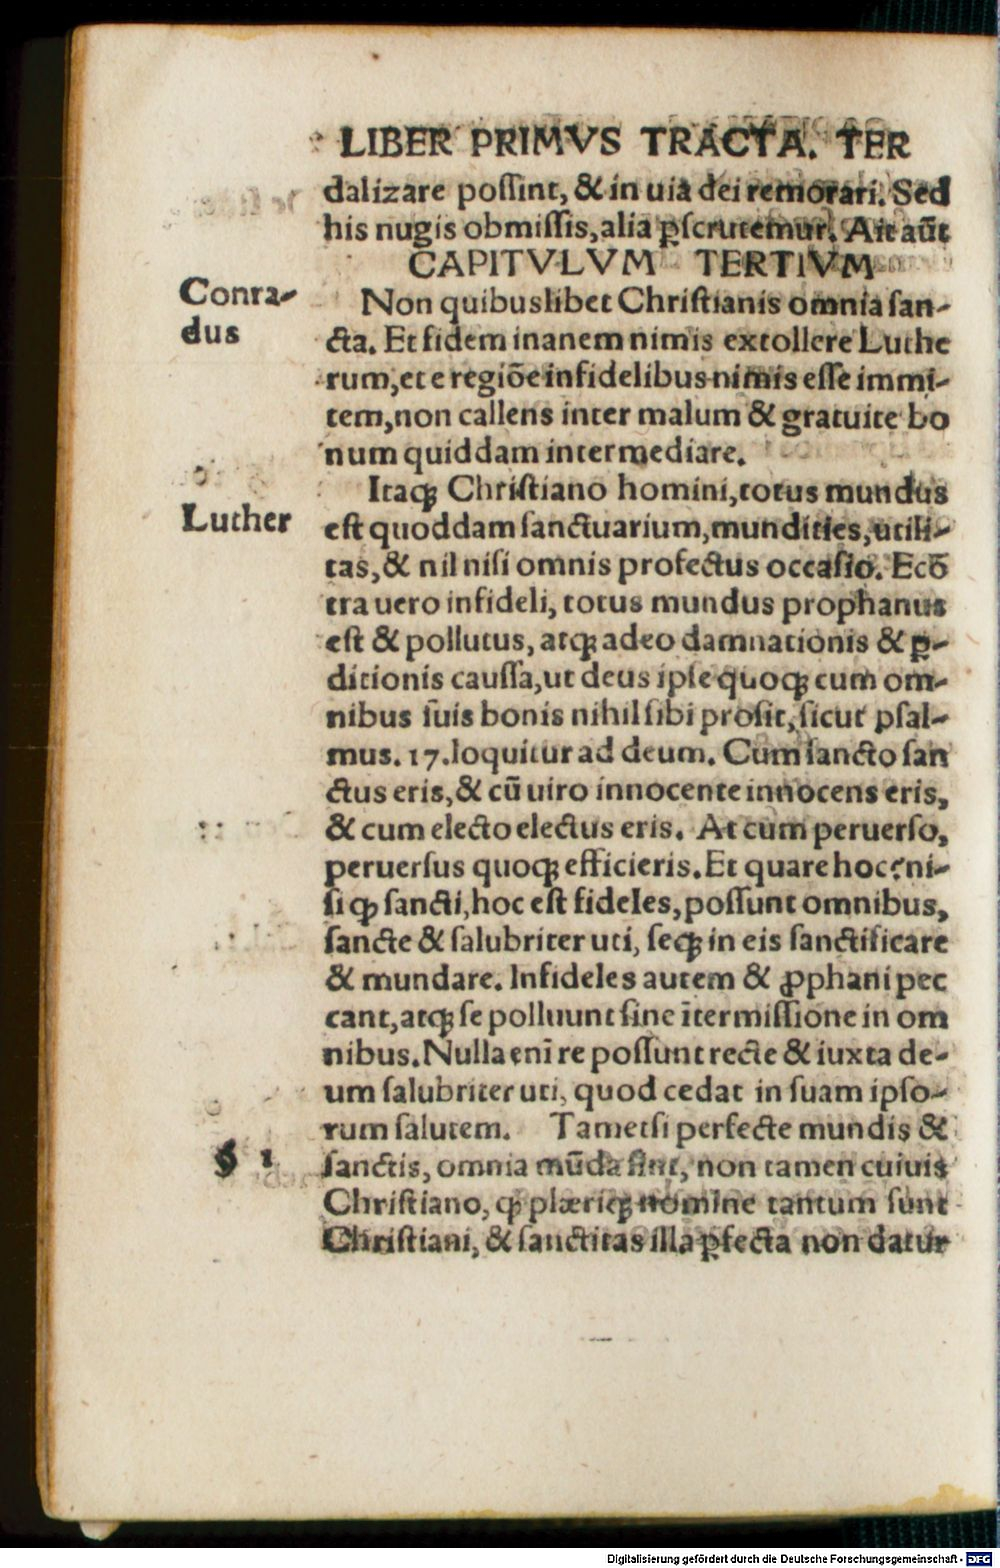 LIBER PRIMVS TRACTA. TER
dalizare poſſint, & in uia dei remorari. Sed
his nugis obmiſſis, alia ꝑſcrutemur. Ait aūt
CAPITVLVM TERTIVM
Conra-
dus
Non quibuslibet Chriſtianis omnia ſan-
cta. Et fidem inanem nimis extollere Luthe
rum, et e regiōe infidelibus nimis eſſe immi-
tem, non callens inter malum & gratuite bo
num quiddam intermediare.
Luther
Itaqꝫ Chriſtiano homini, totus mundus
eſt quoddam ſanctuarium, mundities, utili-
tas, & nil niſi omnis profectus occaſio. Ecō
tra uero infideli, totus mundus prophanus
eſt & pollutus, atqꝫ adeo damnationis & ꝑ-
ditionis cauſſa, ut deus ipſe quoqꝫ cum om-
nibus ſuis bonis nihil ſibi proſit, ſicut pſal-
mus. 17. loquitur ad deum. Cum ſancto ſan
ctus eris, & cū uiro innocente innocens eris,
& cum electo electus eris. At cum peruerſo,
peruerſus quoqꝫ efficieris. Et quare hoc? ni-
ſi ꝙ ſancti, hoc eſt fideles, poſſunt omnibus,
ſancte & ſalubriter uti, ſeqꝫ in eis ſanctificare
& mundare. Infideles autem & ꝓphani pec
cant, atqꝫ ſe polluunt ſine ītermiſſione in om
nibus. Nulla enī re poſſunt recte & iuxta de-
um ſalubriter uti, quod cedat in ſuam ipſo-
rum ſalutem. Tametſi perfecte mundis &
§ 1
ſanctis, omnia mūda ſint, non tamen cuiuis
Chriſtiano, ꝙ plæriqꝫ nomine tantum ſunt
Chriſtiani, & ſanctitas illa ꝑfecta non datur
Digitalisierung gefördert durch die Deutsche Forschungsgemeinschaft - DFG